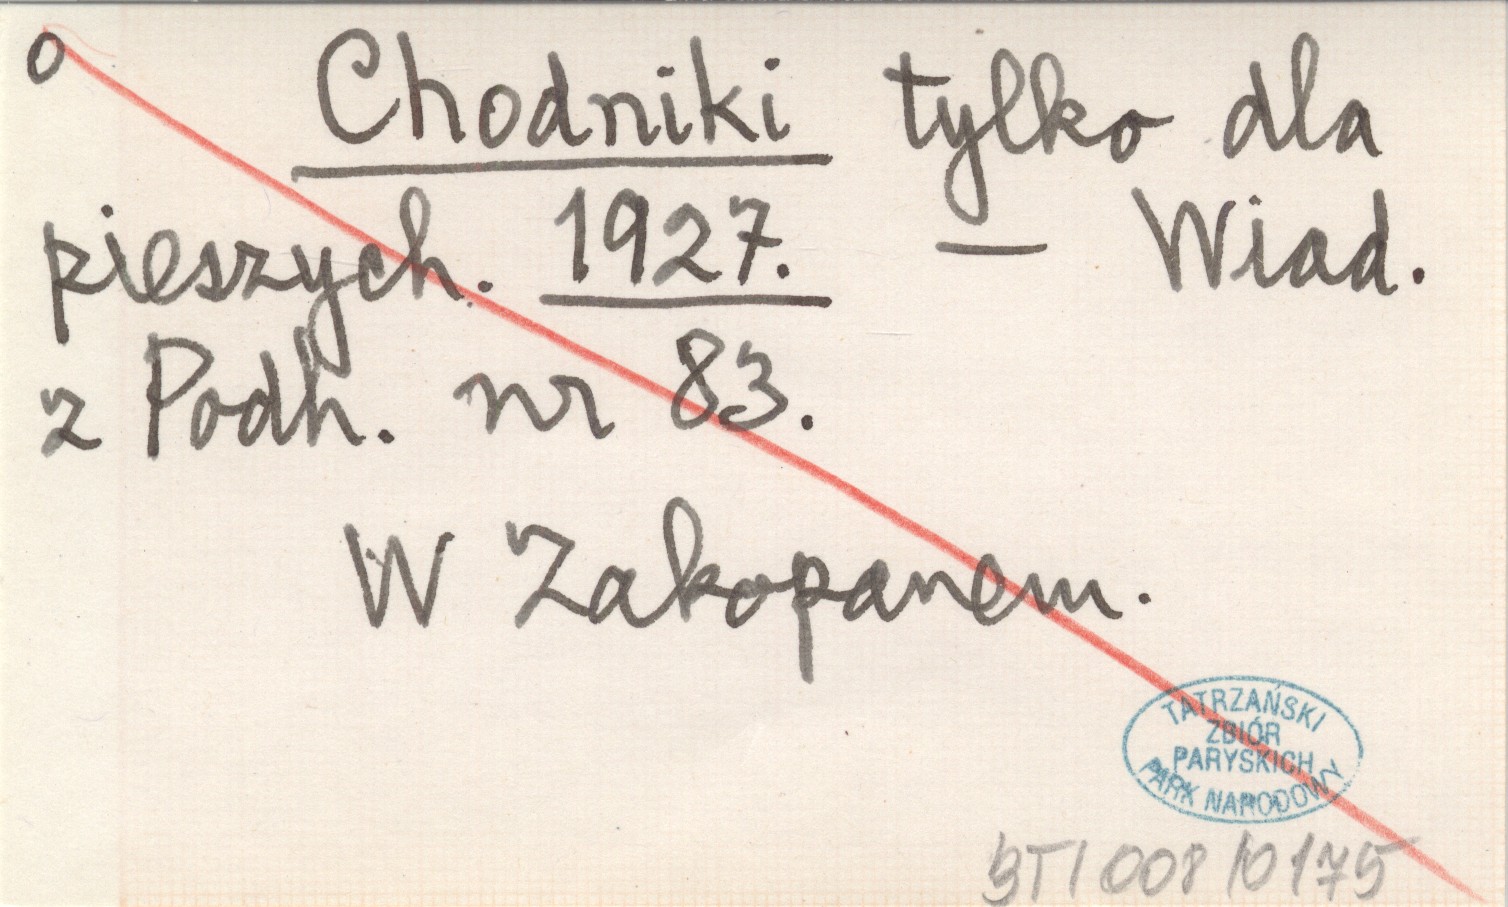 o Chodniki tylko dla
pieszych. 1927. — Wiad.
z Podh. nr 83.
W Zakopanem.
TATRZAŃSKI
ZBIÓR
PARYSKICH
PARK NARODOWY
BTI 008/0175